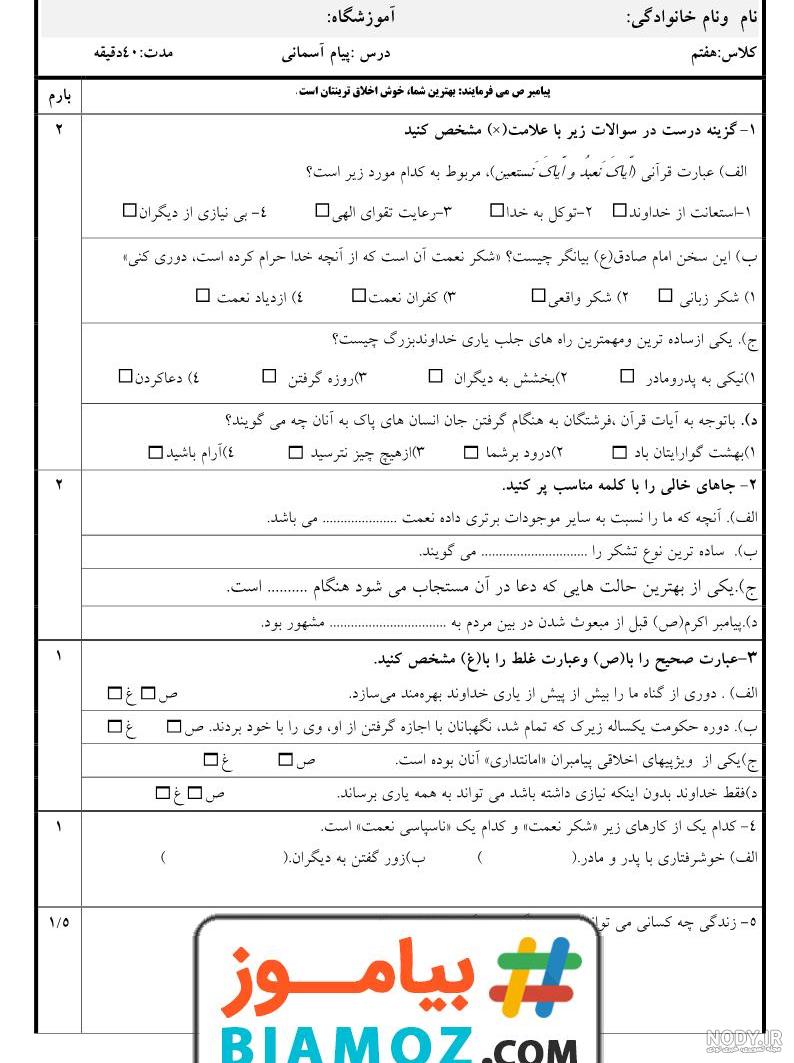 نام  ونام خانوادگی: آموزشگاه:
کلاس:هفتم درس :پیام آسمانی مدت:٤٠دقیقه
پیامبر ص می فرمایند: بهترین شما، خوش اخلاق ترینتان است. بارم
۱-گزینه درست در سوالات زیر با علامت(×) مشخص کنید ۲
الف) عبارت قرآنی (اِیّاکَ نَعبُدُ و اِیّاکَ نَستعین)، مربوط به کدام مورد زیر است؟
۱-استعانت از خداوند□ ۲-توکل به خدا□ ۳-رعایت تقوای الهی□ ٤- بی نیازی از دیگران□
ب) این سخن امام صادق(ع) بیانگر چیست؟ «شکر نعمت آن است که از آنچه خدا حرام کرده است، دوری کنی»
۱) شکر زبانی □ ۲) شکر واقعی□ ۳) کفران نعمت□ ٤) ازدیاد نعمت □
ج). یکی ازساده ترین ومهمترین راه های جلب یاری خداوندبزرگ چیست؟
۱)نیکی به پدرومادر □ ۲)بخشش به دیگران □ ۳)روزه گرفتن □ ٤) دعاکردن□
د). باتوجه به آیات قرآن ،فرشتگان به هنگام گرفتن جان انسان های پاک به آنان چه می گویند؟
۱)بهشت گوارایتان باد □ ۲)درود برشما □ ۳)ازهیچ چیز نترسید □ ٤)آرام باشید□
۲- جاهای خالی را با کلمه مناسب پر کنید. ۲
الف). آنچه که ما را نسبت به سایر موجودات برتری داده نعمت ..................... می باشد.
ب).  ساده ترین نوع تشکر را .............................. می گویند.
ج).یکی از بهترین حالت هایی که دعا در آن مستجاب می شود هنگام .......... است.
د).پیامبر اکرم(ص) قبل از مبعوث شدن در بین مردم به ................................. مشهور بود.
۳-عبارت صحیح را با(ص) وعبارت غلط را با(غ) مشخص کنید. ۱
الف) . دوری از گناه ما را بیش از پیش از یاری خداوند بهره‌مند می‌سازد. ص□ غ□
ب). دوره حکومت یکساله زیرک که تمام شد، نگهبانان با اجازه گرفتن از او، وی را با خود بردند. ص□ غ□
ج)یکی از  ویژیهای اخلاقی پیامبران «امانتداری» آنان بوده است. ص□ غ□
د)فقط خداوند بدون اینکه نیازی داشته باشد می تواند به همه یاری برساند. ص□ غ□
٤- کدام یک از کارهای زیر «شکر نعمت» و کدام یک «ناسپاسی نعمت» است. ۱
الف) خوشرفتاری با پدر و مادر.( ) ب)زور گفتن به دیگران.( )
٥- زندگی چه کسانی می ۱/٥
بیاموز
BIAMOZ.COM
NODY.IR